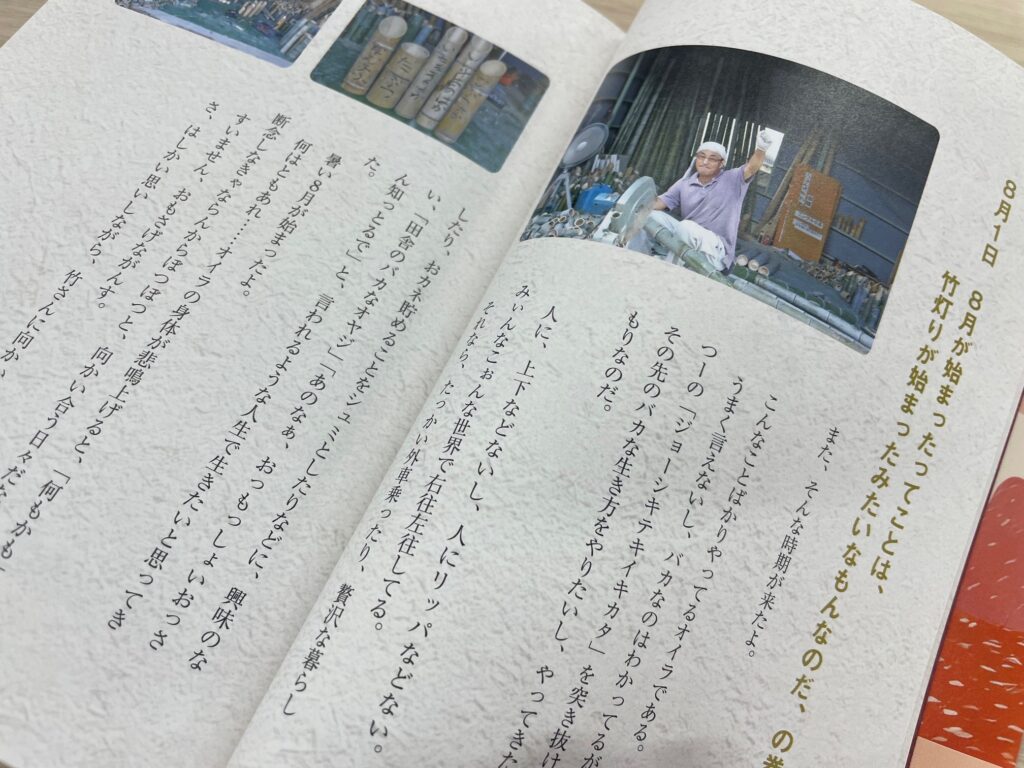 8月1日　8月が始まったってことは、
竹灯りが始まったみたいなもんなのだ、の巻
また、そんな時期が来たよ。
こんなことばかりやってるオイラである。
うまく言えないし、バカなのはわかってるが
つーの「ジョーシキテキイキカタ」を突き抜け
その先のバカな生き方をやりたいし、やってきた
もりなのだ。
人に、上下などないし、人にリッパなどない。
みぃんなこぉんな世界で右往左往してる。
それなら、たっかい外車乗ったり、贅沢な暮らし
したり、おカネ貯めることをシュミとしたりなどに、興味のな
い、「田舎のバカなオヤジ」「あのなぁ、おっもっしょいおっさ
ん知っとるで」と、言われるような人生で生きたいと思ってき
た。
暑い8月が始まったよ。
何はともあれ…オイラの身体が悲鳴上げると、「何もかも」
断念しなきゃならんからぼつぼつと、向かい合う日々だな
すいません、おもさげながんす。
さ、はしかい思いしながら、竹さんに向か